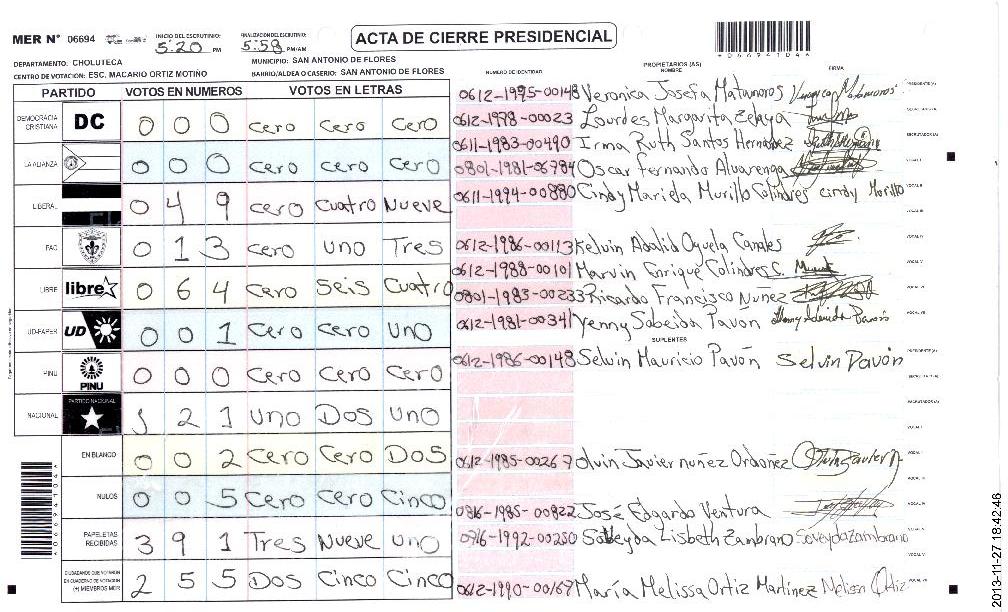 MER Nº 06694
INICIO DEL ESCRUTINIO: 5:20 PM
FINALIZACION DEL ESCRUTINIO: 5:58 PM/AM
ACTA DE CIERRE PRESIDENCIAL
DEPARTAMENTO: CHOLUTECA
MUNICIPIO: SAN ANTONIO DE FLORES
CENTRO DE VOTACION: ESC. MACARIO ORTIZ MOTIÑO
BARRIO/ALDEA O CASERIO: SAN ANTONIO DE FLORES
PARTIDO VOTOS EN NUMEROS VOTOS EN LETRAS
DEMOCRACIA CRISTIANA DC 0 0 0 Cero Cero Cero
LA ALIANZA 0 0 0 Cero Cero Cero
LIBERAL 0 4 9 Cero Cuatro Nueve
PAC 0 1 3 Cero Uno Tres
LIBRE libre 0 6 4 Cero Seis Cuatro
UD-FAPER UD 0 0 1 Cero Cero Uno
PINU PINU 0 0 0 Cero Cero Cero
NACIONAL PARTIDO NACIONAL 1 2 1 Uno Dos Uno
EN BLANCO 0 0 2 Cero Cero Dos
NULOS 0 0 5 Cero Cero Cinco
PAPELETAS RECIBIDAS 3 9 1 Tres Nueve Uno
CIUDADANOS QUE VOTARON EN CUADERNO DE VOTACION (+) MIEMBROS MER 2 5 5 Dos Cinco Cinco
NUMERO DE IDENTIDAD PROPIETARIOS (AS) NOMBRE FIRMA
0612-1995-00148 Veronica Josefa Matamoros Veronica Matamoros PRESIDENTE(A)
0612-1978-00023 Lourdes Margarita Zelaya
0611-1983-00490 Irma Ruth Santos Hernández ESCRUTADOR (A)
0801-1981-06784 Oscar Fernando Alvarenga VOCAL I
0611-1994-00880 Cindy Mariela Murillo Colindres Cindy Morillo VOCAL II
VOCAL III
0612-1986-00113 Kelvin Abalid Oyuela Canales VOCAL IV
0612-1988-00101 Marvin Enrique Colindres C. VOCAL V
0801-1983-00233 Ricardo Francisco Nuñez VOCAL VI
0612-1981-00341 Yenny Sobeida Pavón VOCAL VII
SUPLENTES
0612-1986-00148 Selvin Mauricio Pavón Selvin Pavón PRESIDENTE(A)
SECRETARIO (A)
ESCRUTADOR (A)
VOCAL I
0612-1985-00267 Olvin Javier nuñez Ordoñez VOCAL II
VOCAL III
0816-1985-00822 José Edgardo Ventura VOCAL IV
0716-1992-00250 Soveyda Lisbeth Zambrano Soveyda Zambrano VOCAL V
VOCAL VI
0612-1990-00167 María Melissa Ortiz Martínez Melissa Ortiz VOCAL VII
2013-11-27 18:42:46